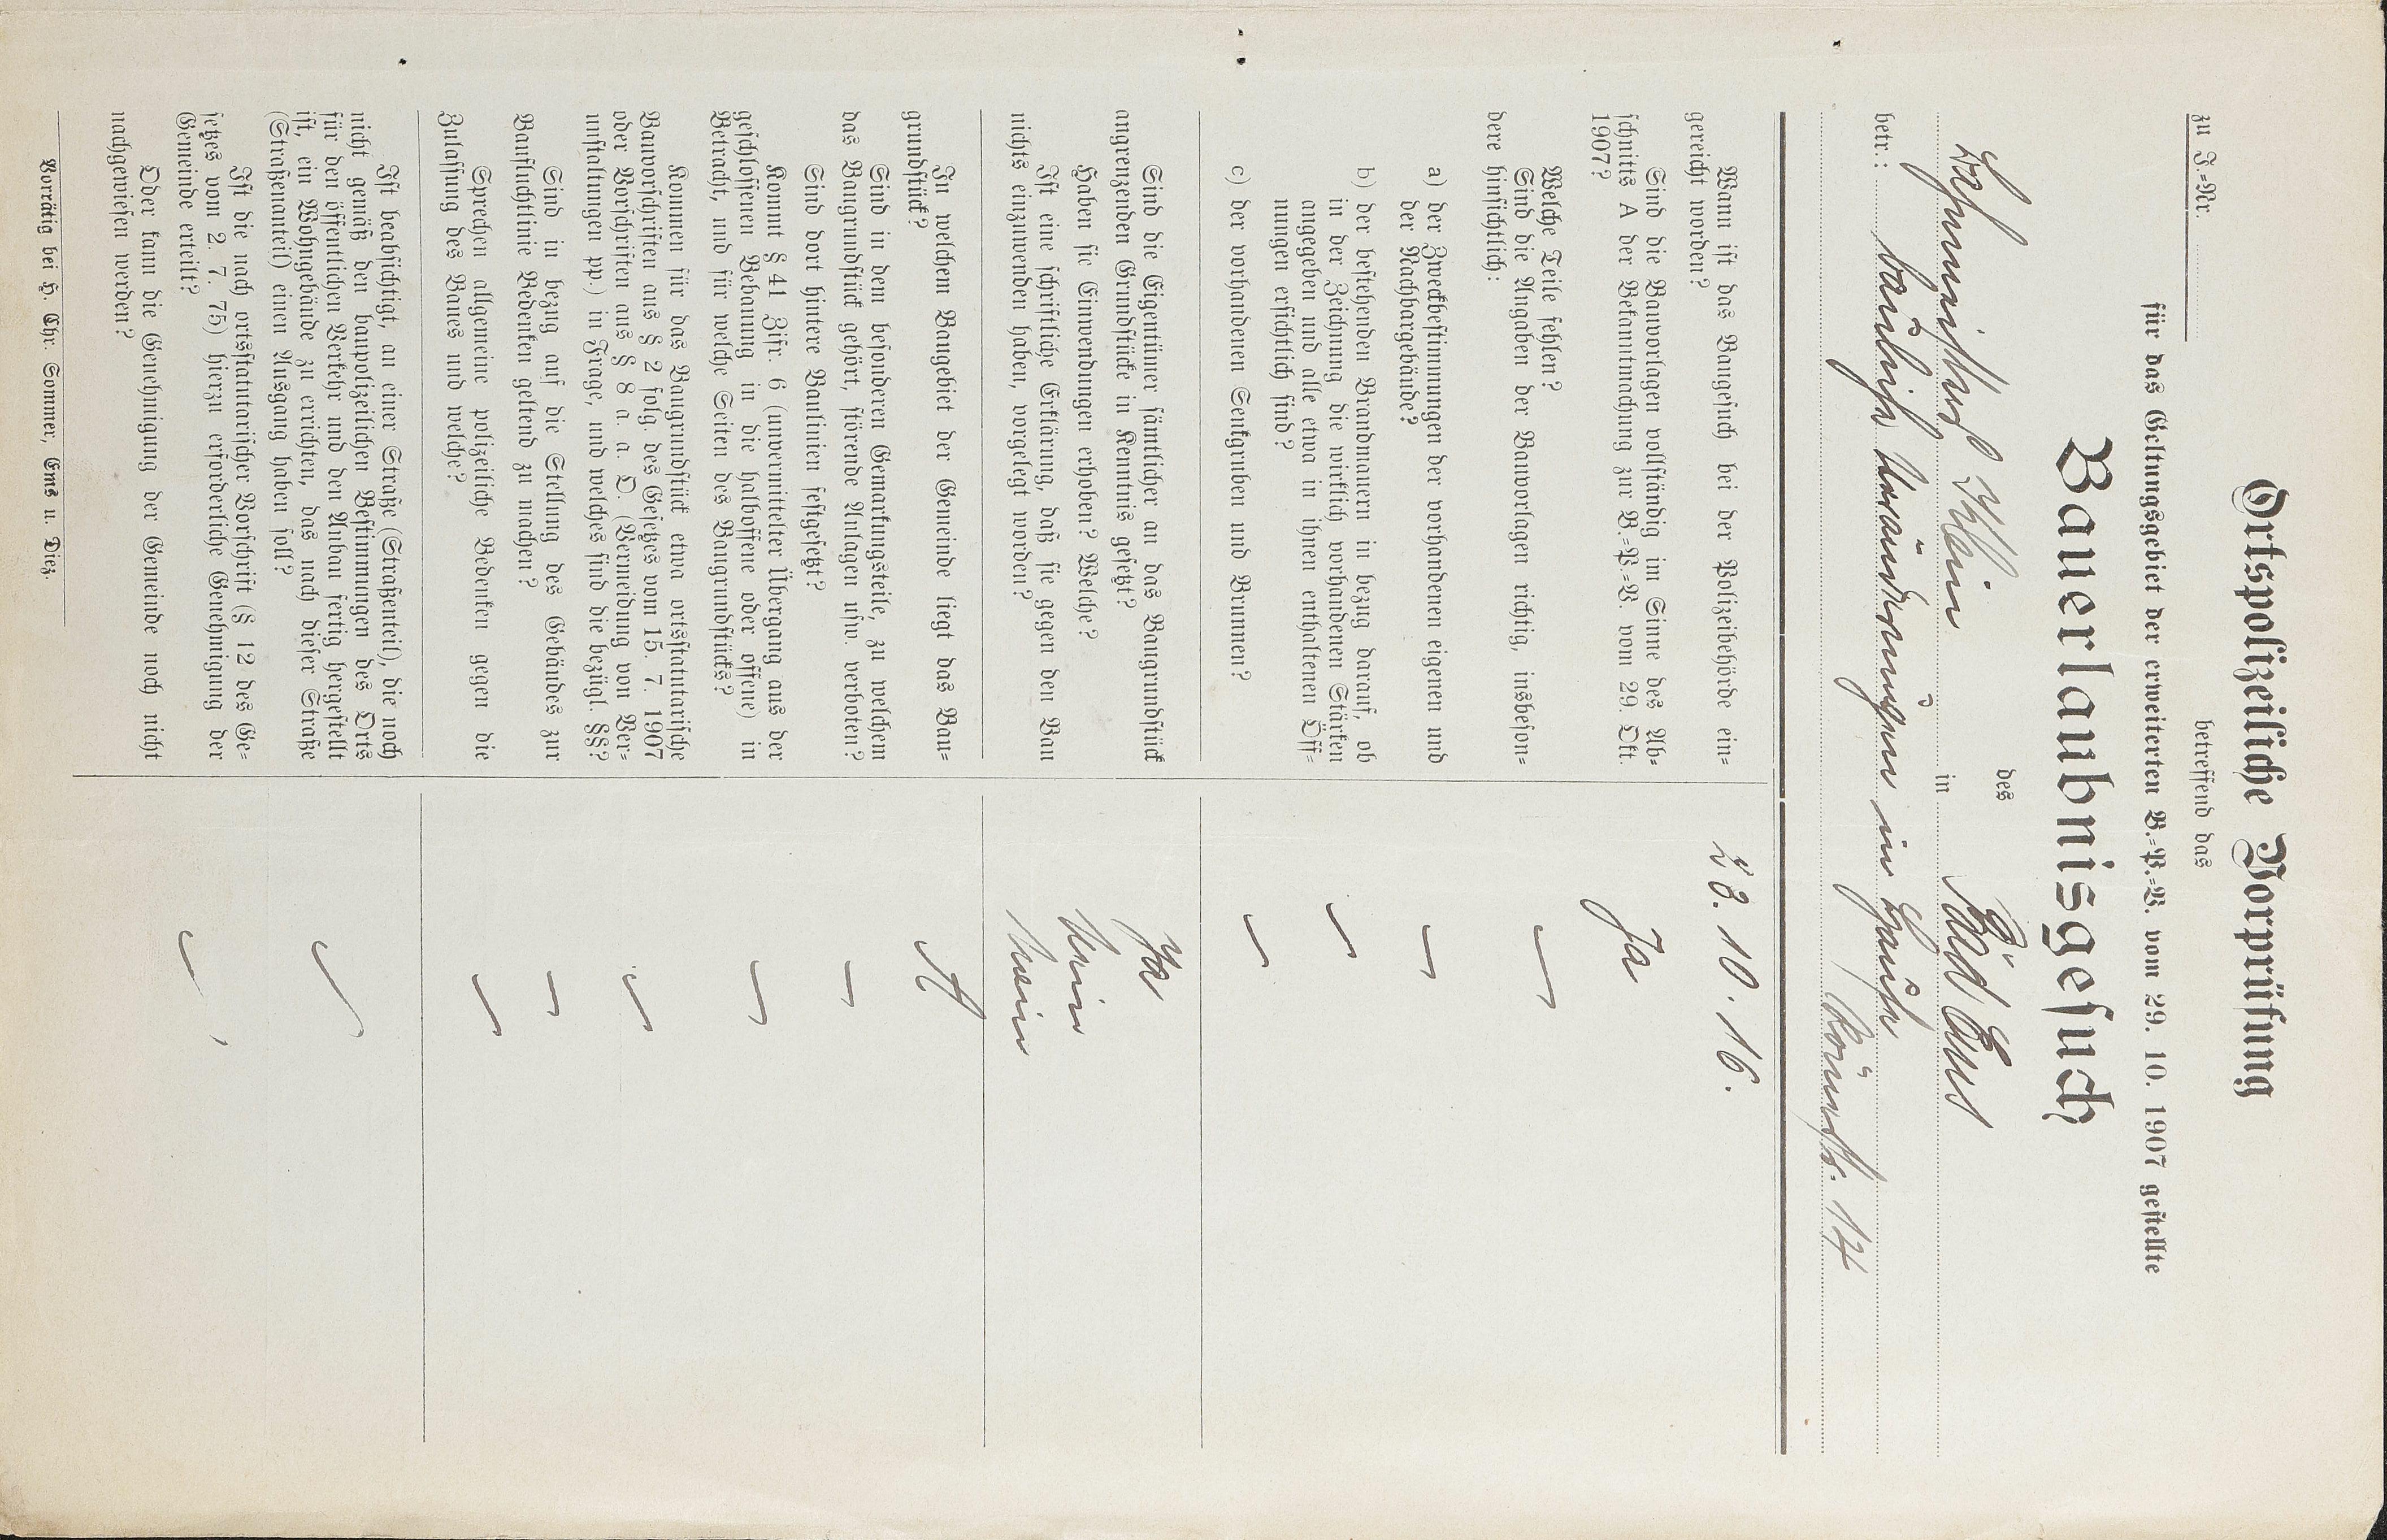 Ortspolizeiliche Vorprüfung
betreffend das
zu J.=Nr.
für das Geltungsgebiet der erweiterten B.=P.=V. vom 29. 10. 1907 gestellte
Bauerlaubnisgesuch
des
in Bad Ems
betr.: bauliche Veränderungen im Hause
Römerstr. 17
Wann ist das Baugesuch bei der Polizeibehörde ein=
gereicht worden?
23. 10. 16.
Sind die Bauvorlagen vollständig im Sinne des Ab=
schnitts A der Bekanntmachung zur B.=P.=V. vom 29. Okt.
1907?
Ja
Welche Teile fehlen?
Sind die Angaben der Bauvorlagen richtig, insbeson=
dere hinsichtlich:
—
a) der Zweckbestimmungen der vorhandenen eigenen und
der Nachbargebäude?
—
b) der bestehenden Brandmauern in bezug darauf, ob
in der Zeichnung die wirklich vorhandenen Stärken
angegeben und alle etwa in ihnen enthaltenen Öff=
nungen ersichtlich sind?
—
c) der vorhandenen Senkgruben und Brunnen?
—
Sind die Eigentümer sämtlicher an das Baugrundstück
angrenzenden Grundstücke in Kenntnis gesetzt?
Ja
Haben sie Einwendungen erhoben? Welche?
Nein
Ist eine schriftliche Erklärung, daß sie gegen den Bau
nichts einzuwenden haben, vorgelegt worden?
Nein
In welchem Baugebiet der Gemeinde liegt das Bau=
grundstück?
A
Sind in dem besonderen Gemarkungsteile, zu welchem
das Baugrundstück gehört, störende Anlagen usw. verboten?
—
Sind dort hintere Baulinien festgesetzt?
Kommt § 41 Zifr. 6 (unvermittelter Übergang aus der
geschlossenen Bebauung in die halboffene oder offene) in
Betracht, und für welche Seiten des Baugrundstücks?
—
Kommen für das Baugrundstück etwa ortsstatutarische
Bauvorschriften aus § 2 folg. des Gesetzes vom 15. 7. 1907
oder Vorschriften aus § 8 a. a. O. (Vermeidung von Ver=
unstaltungen pp.) in Frage, und welches sind die bezügl. §§?
—
Sind in bezug auf die Stellung des Gebäudes zur
Baufluchtlinie Bedenken geltend zu machen?
—
Sprechen allgemeine polizeiliche Bedenken gegen die
Zulassung des Baues und welche?
—
Ist beabsichtigt, an einer Straße (Straßenteil), die noch
nicht gemäß den baupolizeilichen Bestimmungen des Orts
für den öffentlichen Verkehr und den Anbau fertig hergestellt
ist, ein Wohngebäude zu errichten, das nach dieser Straße
(Straßenanteil) einen Ausgang haben soll?
—
Ist die nach ortsstatutarischer Vorschrift (§ 12 des Ge=
setzes vom 2. 7. 75) hierzu erforderliche Genehmigung der
Gemeinde erteilt?
—
Oder kann die Genehmigung der Gemeinde noch nicht
nachgewiesen werden?
Vorrätig bei H. Chr. Sommer, Ems u. Diez.